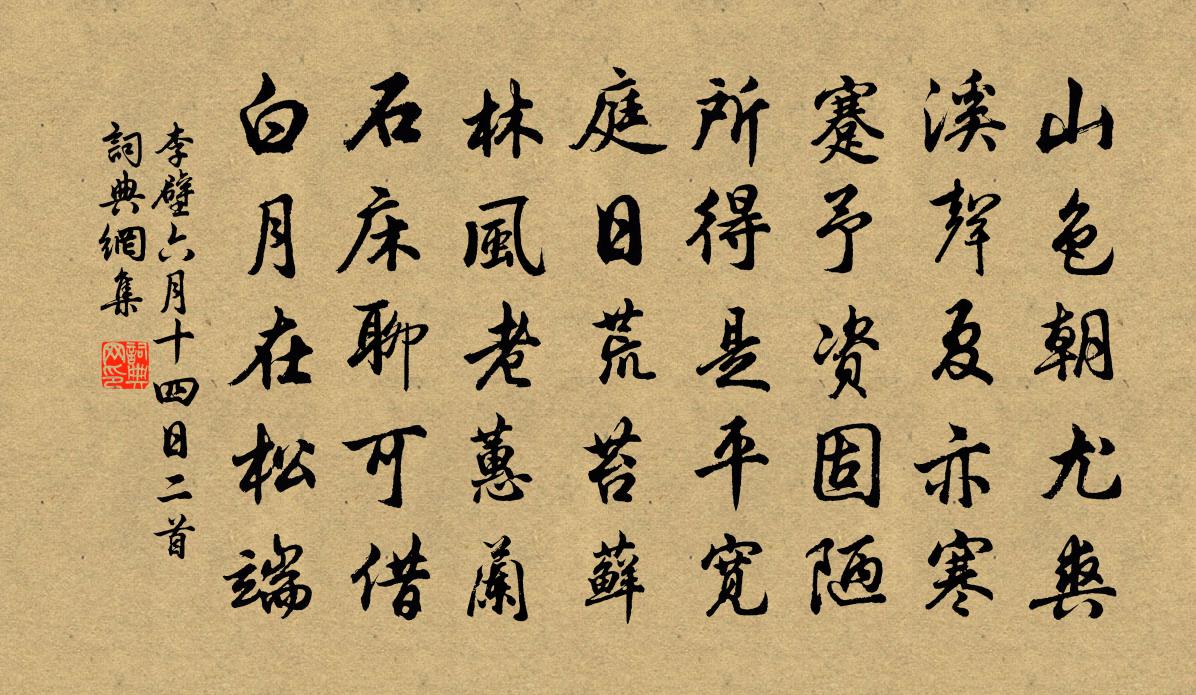 山色朝尤爽
溪聲夏亦寒
蹇予资固陋
所得是平寬
庭日荒苔蘚
林風老蕙蘭
石床聊可借
白月在松端
李壁六月十四日二首
詞典網集
詞典
网印